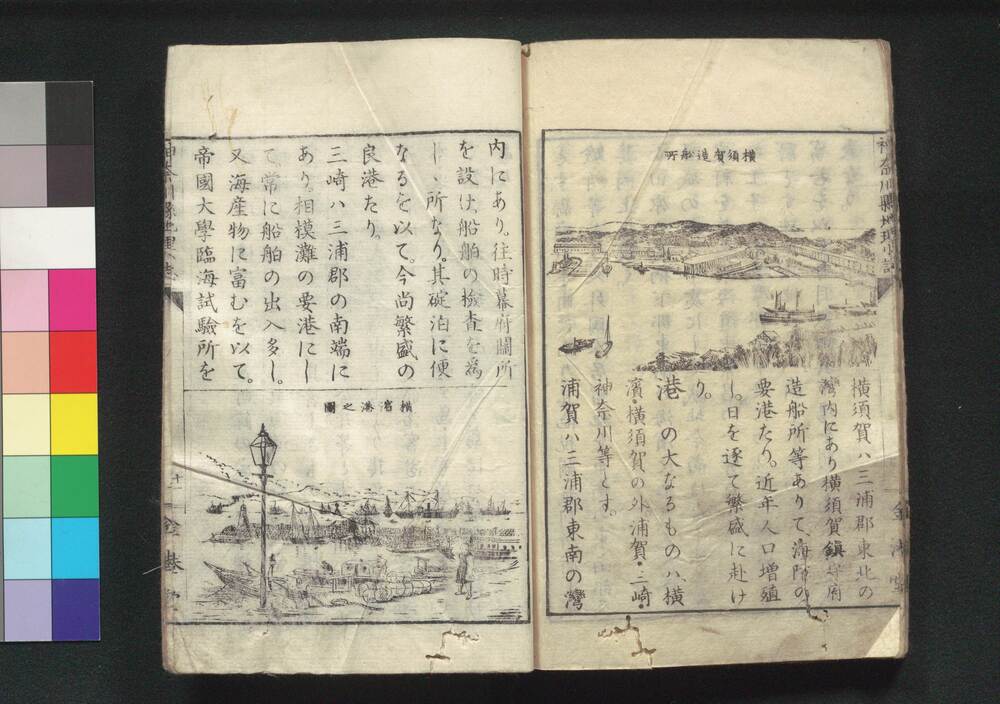 横須賀造船所
横須賀ハ三浦郡東北の
灣内にあり横須賀鎮守府
造船所等ありて海防の
要港たり。近年人口増殖
し。日を逐て繁盛に赴け
り。
港 の大なるものハ、橫
濱・橫須賀の外浦賀・三崎・
神奈川等とす。
浦賀ハ三浦郡東南の灣
神奈川縣地理小誌
内にあり。往時幕府關所
を設け、船舶の檢査を爲
しゝ所なり。其碇泊に便
なるを以て。今尚繁盛の
良港たり。
三崎ハ三浦郡の南端に
あり。相模灘の要港にし
て、常に船舶の出入多し。
又海産物に富むを以て。
帝國大學臨海試驗所を
橫濱港之圖
十一
金港堂